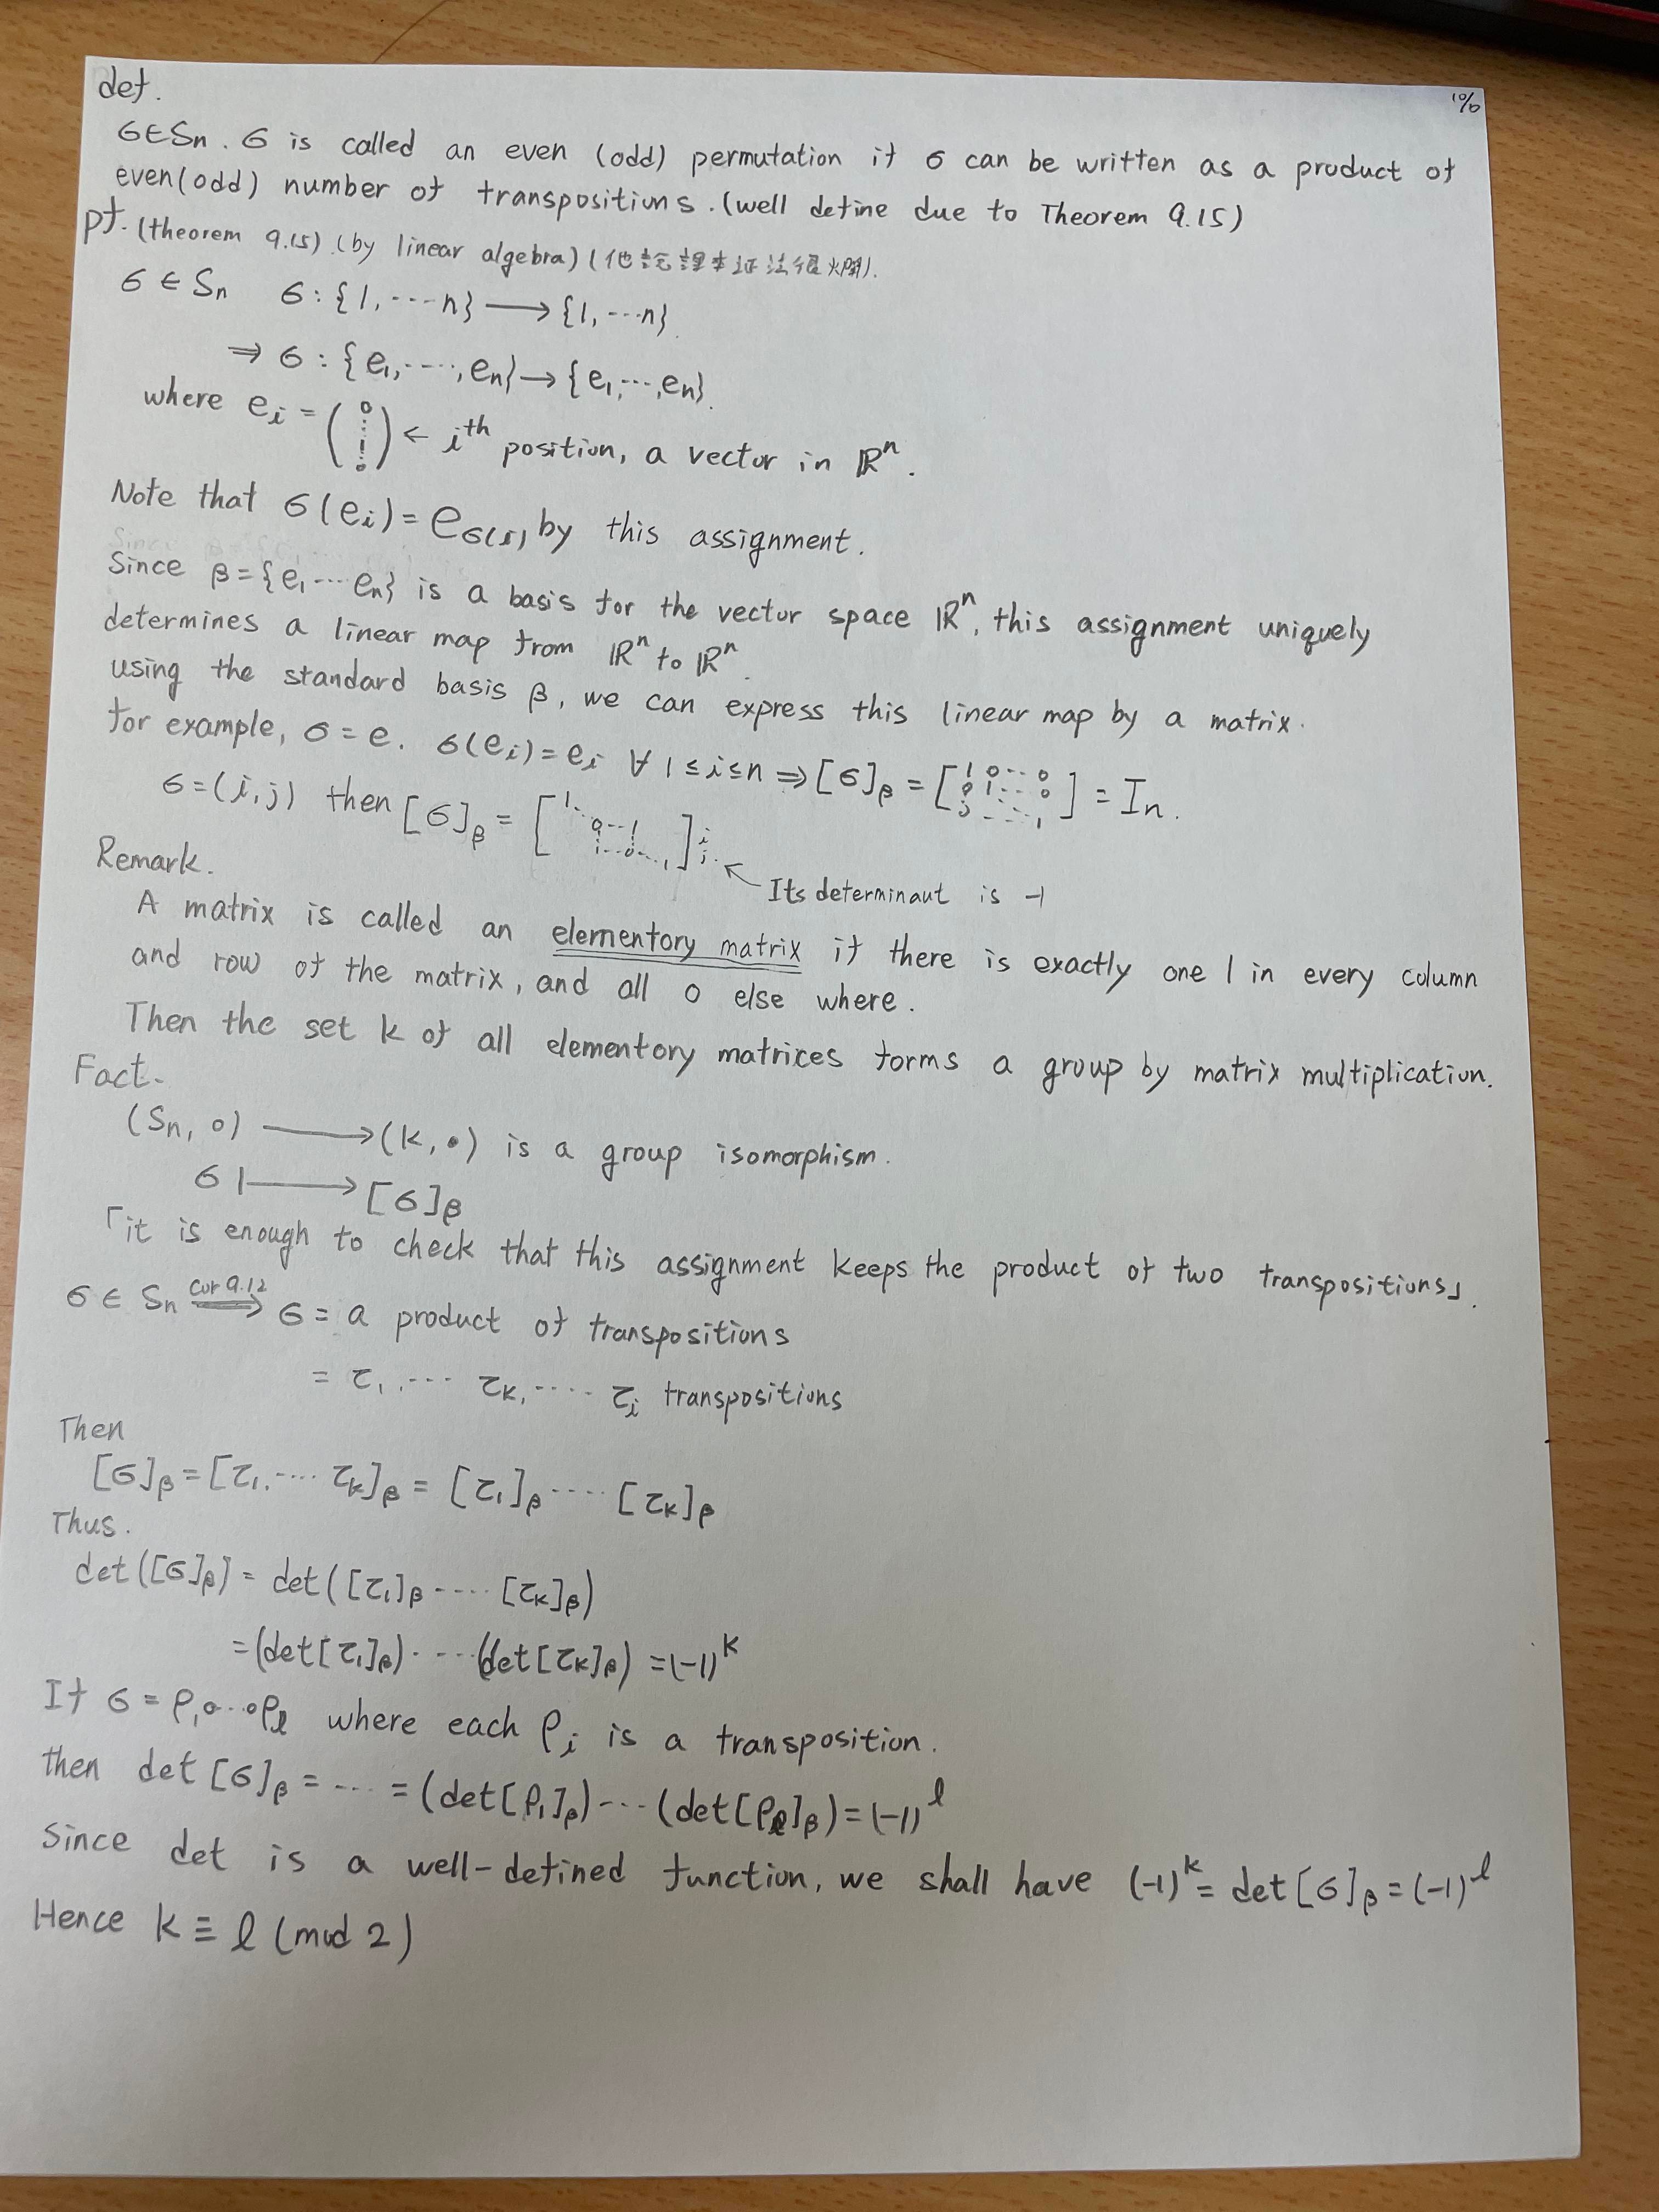 def.
σ∈Sn. σ is called an even (odd) permutation if σ can be written as a product of
even(odd) number of transpositions. (well define due to Theorem 9.15)
pf. (theorem 9.15) (by linear algebra) (他說課本証法很火鬧).
σ ∈ Sn σ : {1, ---- n} ⟶ {1, ---n}.
⇒ σ : {e₁, ----, en} → {e₁, ---, en}.
where eᵢ = (0 ⋮ 1 ⋮ 0) ← iᵗʰ position, a vector in ℝⁿ.
Note that σ(eᵢ) = e_σ(i) by this assignment.
Since β = {e₁ ---- en} is a basis for the vector space ℝⁿ, this assignment uniquely
determines a linear map from ℝⁿ to ℝⁿ.
using the standard basis β, we can express this linear map by a matrix.
for example, σ = e. σ(eᵢ) = eᵢ ∀ 1 ≤ i ≤ n ⇒ [σ]β = [1 0 --- 0 0 1 --- 0 0 --- 1] = In.
σ = (i, j) then [σ]β = [1 ⋱ 0 -- 1 1 -- 0 ⋱ 1] i j
← Its determinant is -1
Remark.
A matrix is called an elementory matrix if there is exactly one 1 in every column
and row of the matrix, and all 0 else where.
Then the set k of all elementory matrices forms a group by matrix multiplication.
Fact.
(Sn, ∘) ⟶ (k, •) is a group isomorphism.
σ ⟼ [σ]β
「it is enough to check that this assignment keeps the product of two transpositions」.
σ ∈ Sn ⟹ (cor 9.12) σ = a product of transpositions
= τ₁, ---- τk, ---- τᵢ transpositions
Then
[σ]β = [τ₁. ---- τk]β = [τ₁]β ---- [τk]β
Thus.
det([σ]β) = det([τ₁]β ---- [τk]β)
= (det[τ₁]β) ---- (det[τk]β) = (-1)ᵏ
If σ = ρ₁∘--∘ρℓ where each ρᵢ is a transposition.
then det [σ]β = ---- = (det[ρ₁]β) --- (det[ρℓ]β) = (-1)^ℓ
Since det is a well-defined function, we shall have (-1)ᵏ = det[σ]β = (-1)^ℓ
Hence k ≡ ℓ (mod 2)